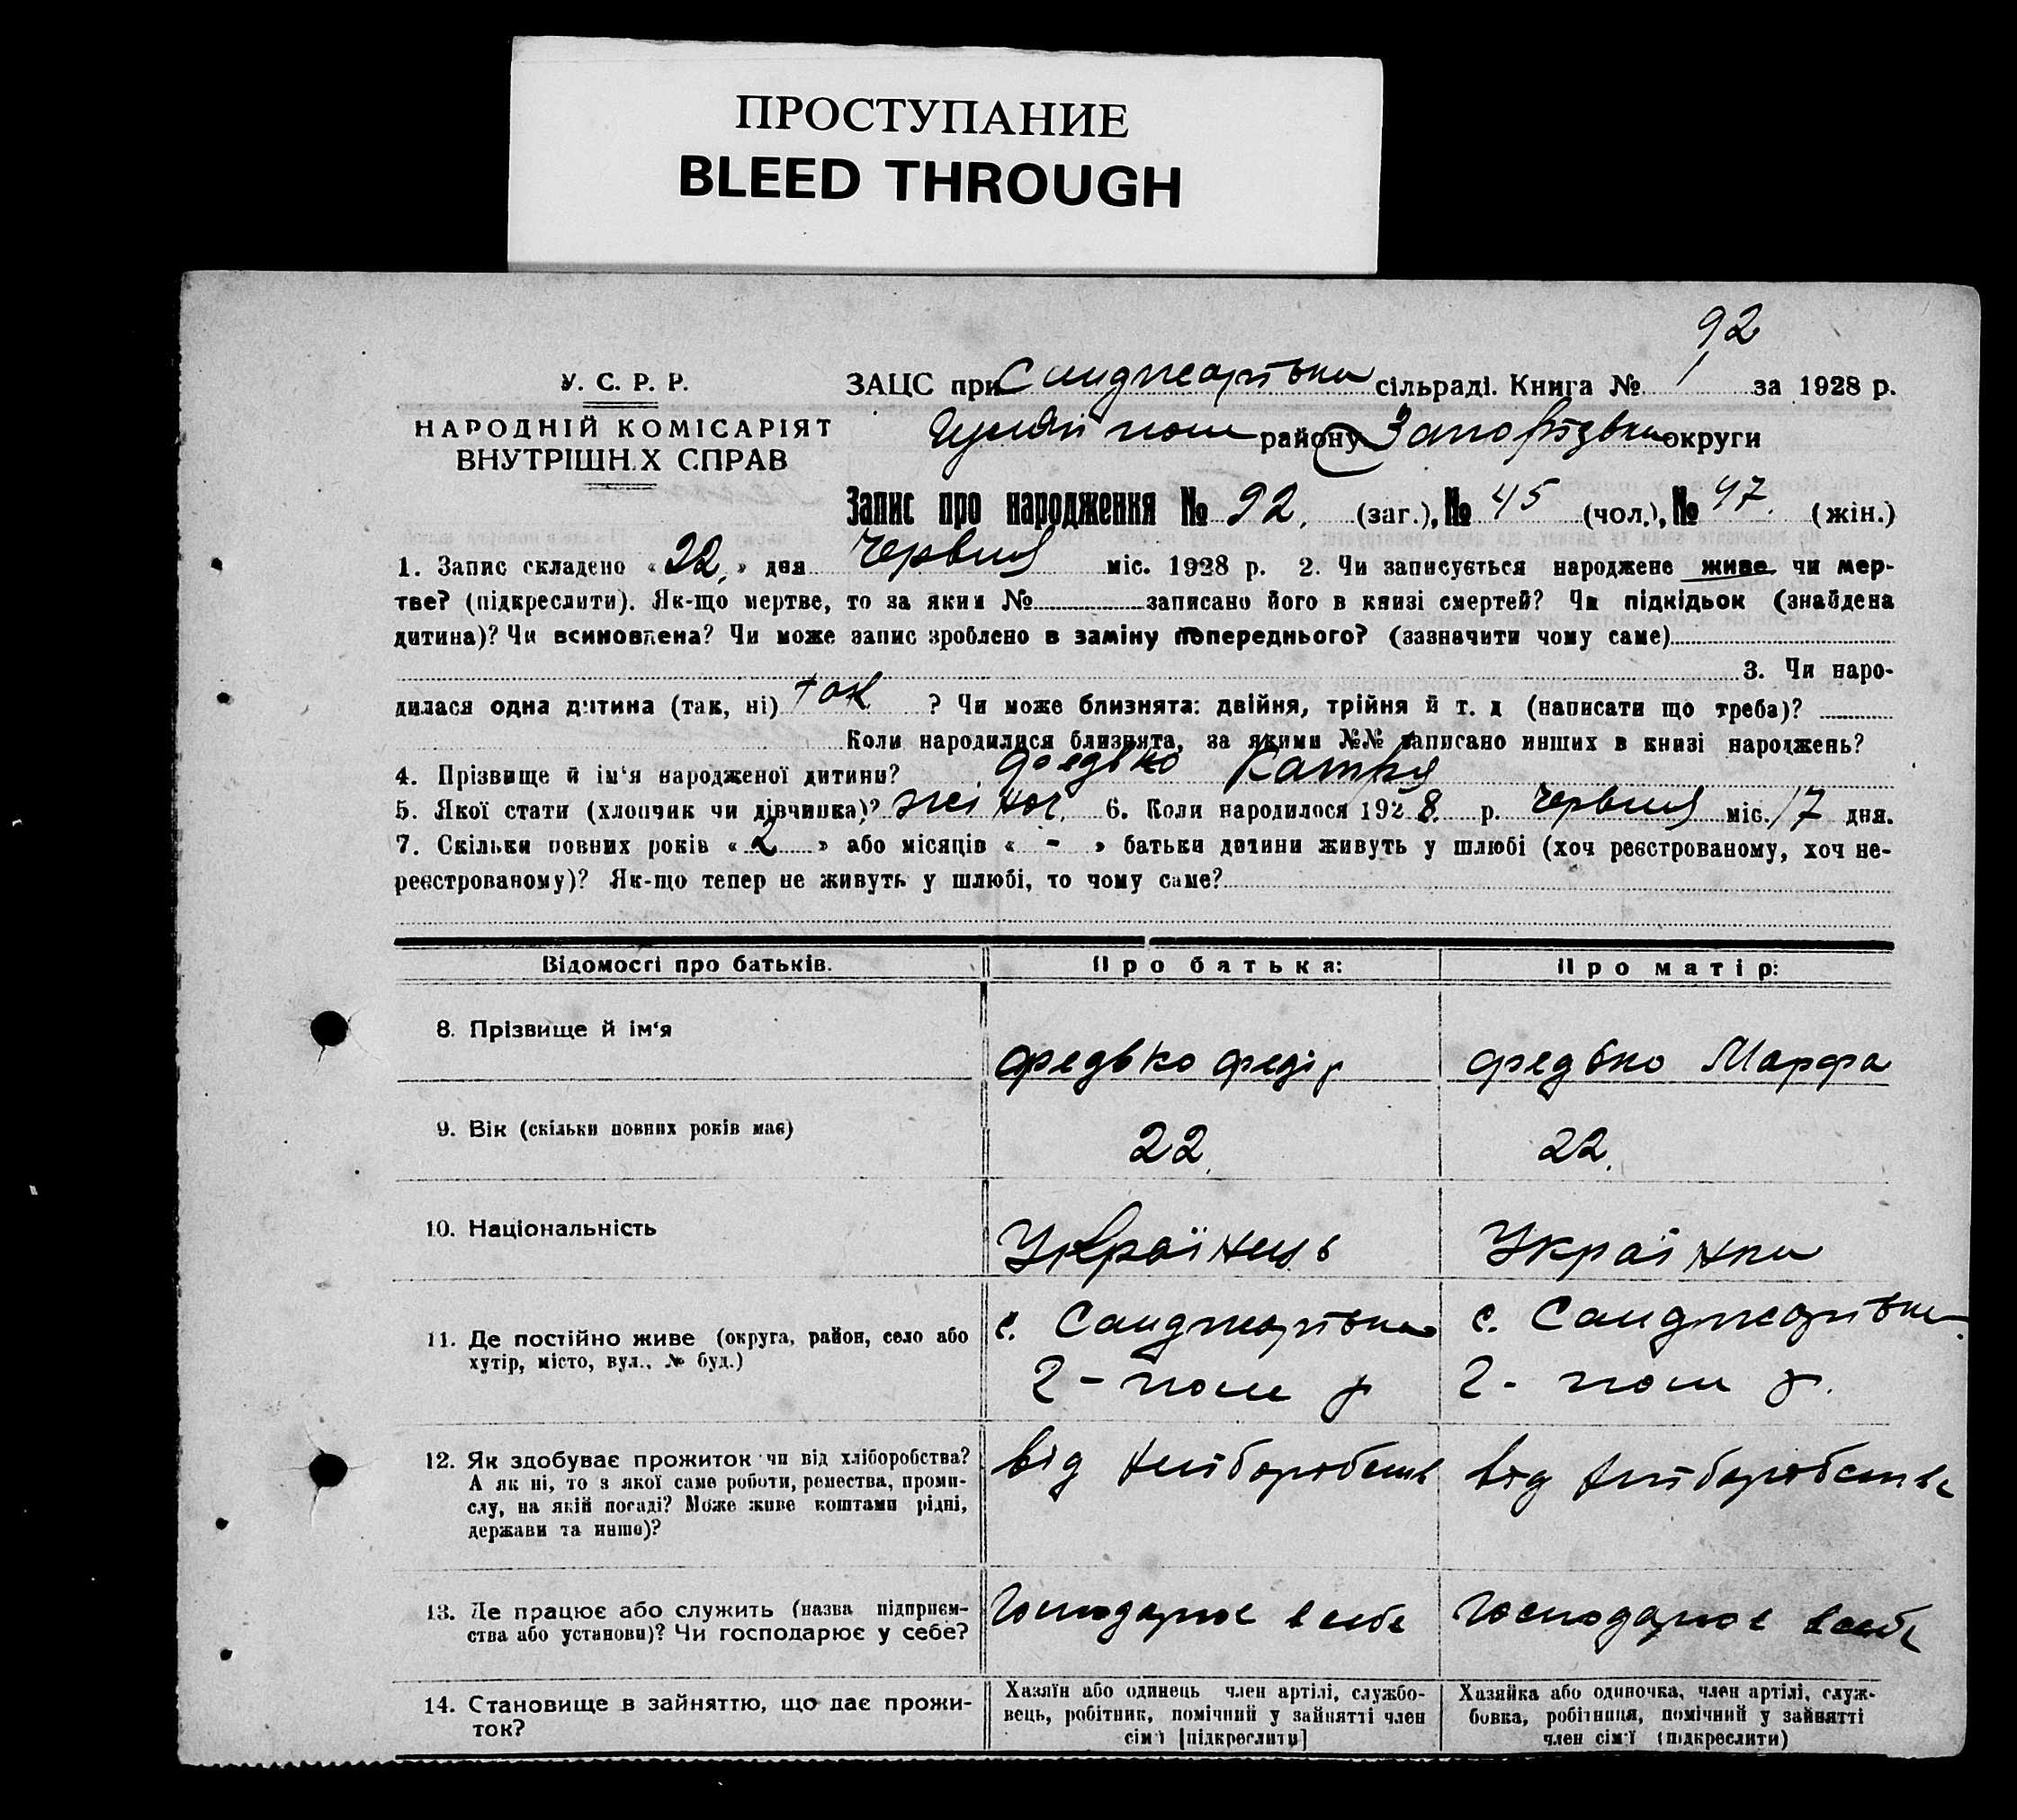 ПРОСТУПАНИЕ
BLEED THROUGH
92
У. С. Р. Р.
НАРОДНІЙ КОМІСАРІЯТ
ВНУТРІШН.Х СПРАВ
ЗАЦС при Санджарівка сільраді. Книга № 1 за 1928 р.
Гуляй поле району Запорізька округи
Запис про народження № 92. (заг.), № 45 (чол.), № 47. (жін.)
1. Запис складено «22.» дня червня міс. 1928 р. 2. Чи записується народжене живе чи мер-
тве? (підкреслити). Як-що мертве, то за яким № записано його в книзі смертей? Чи підкідьок (знайдена
дитина)? Чи всиновлена? Чи може запис зроблено в заміну попереднього? (зазначити чому саме)
3. Чи наро-
дилася одна дитина (так, ні) так ? Чи може близнята: двійня, трійня й т. д (написати що треба)?
Коли народилися близнята, за якими №№ записано инших в книзі народжень?
4. Прізвище й ім‘я народженої дитини? Федько Катря
5. Якої стати (хлопчик чи дівчинка)? жіноч. 6. Коли народилося 1928. р. червня міс. 17 дня.
7. Скільки повних років «2» або місяців « - » батьки дитини живуть у шлюбі (хоч реєстрованому, хоч не-
реєстрованому)? Як-що тепер не живуть у шлюбі, то чому саме?
Відомості про батьків. Про батька: Про матір:
8. Прізвище й ім‘я Федько Федір Федько Марфа
9. Вік (скільки повних років має) 22. 22.
10. Національність Українець Українка
11. Де постійно живе (округа, район, село або
хутір, місто, вул., № буд.)
с. Санджарівка
Г-поле р
с. Санджарівка
Г- поле р.
12. Як здобуває прожиток чи від хліборобства?
А як ні, то з якої саме роботи, ремества, проми-
слу, на якій посаді? Може живе коштами рідні,
держави та инше)?
від хліборобств
від хліборобства
13. Де працює або служить (назва підприєм-
ства або установи)? Чи господарює у себе?
Господарює в себе
Господарює в себе
14. Становище в зайняттю, що дає прожи-
ток?
Хазяїн або одинець член артілі, службо-
вець, робітник, помічний у зайнятті член
сім‘ї [підкреслити]
Хазяйка або одиночка, член артілі, служ-
бовка, робітниця, помічний у зайнятті
член сім‘ї (підкреслити)